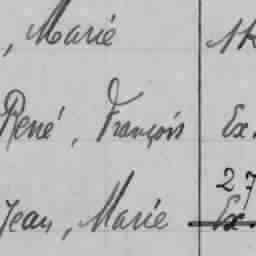 , Marie
René, François Ex.
27
Jean, Marie Ex.